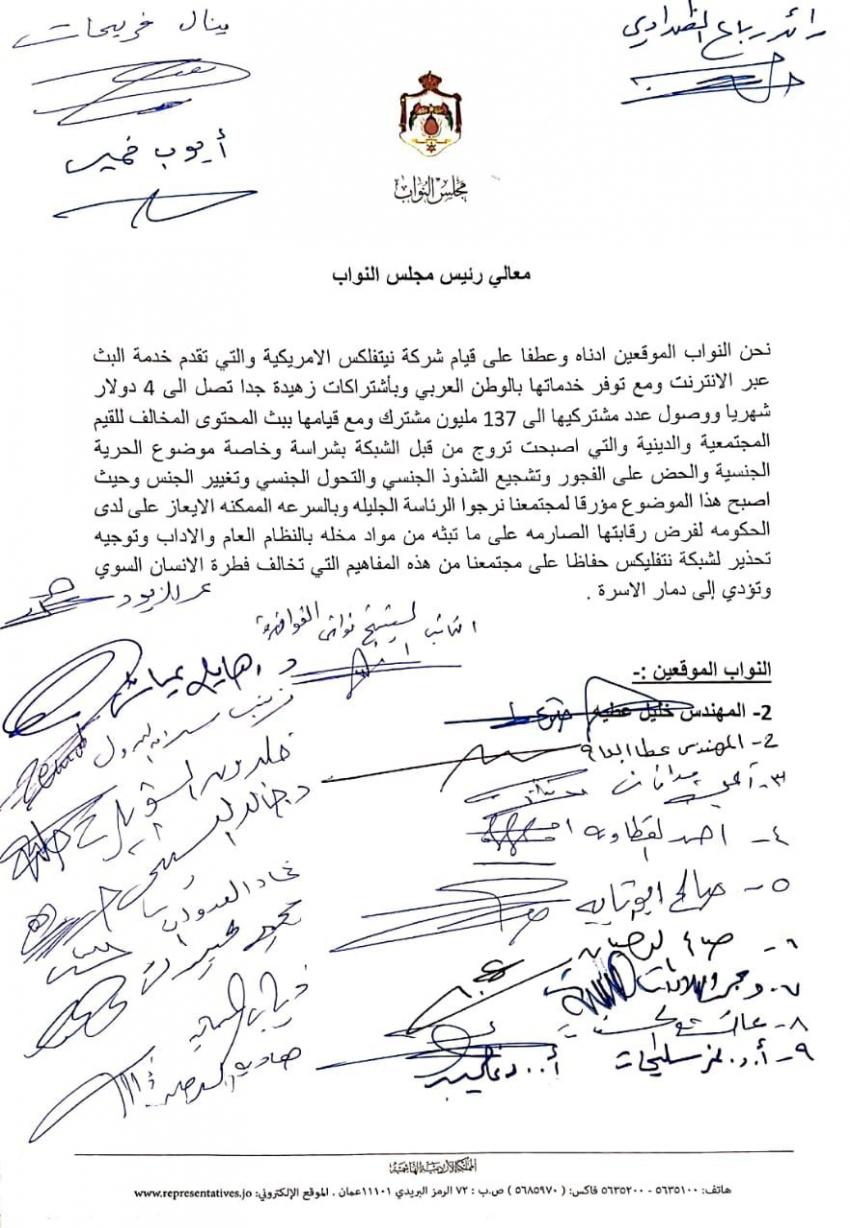 رائد رباع الظهراوي
ينال فريحات
أيوب خميس
مجلس النواب
معالي رئيس مجلس النواب
نحن النواب الموقعين ادناه وعطفا على قيام شركة نيتفلكس الامريكية والتي تقدم خدمة البث
عبر الانترنت ومع توفر خدماتها بالوطن العربي وبأشتراكات زهيدة جدا تصل الى 4 دولار
شهريا ووصول عدد مشتركيها الى 137 مليون مشترك ومع قيامها ببث المحتوى المخالف للقيم
المجتمعية والدينية والتي اصبحت تروج من قبل الشبكة بشراسة وخاصة موضوع الحرية
الجنسية والحض على الفجور وتشجيع الشذوذ الجنسي والتحول الجنسي وتغيير الجنس وحيث
اصبح هذا الموضوع مؤرقا لمجتمعنا نرجوا الرئاسة الجليله وبالسرعه الممكنه الايعاز على لدى
الحكومه لفرض رقابتها الصارمه على ما تبثه من مواد مخله بالنظام العام والاداب وتوجيه
تحذير لشبكة نتفليكس حفاظا على مجتمعنا من هذه المفاهيم التي تخالف فطرة الانسان السوي
وتؤدي إلى دمار الاسرة .
عمر الزيود
النائب الشيخ
النواب الموقعين :-
2- المهندس خليل عطيه
2- المهندس
٣-
٤- احمد
٥- صالح ابو تايه
٦- صفاء
٧-
٨-
٩- أ.د.
د. هايل عياش
زينب
خلدون
د. خالد
العدوان
محمود
ذياب
المملكة الأردنية الهاشمية
هاتف: ٥٦٣٥١٠٠ - ٥٦٣٥٢٠٠ فاكس: ( ٥٦٨٥٩٧٠ ) ص.ب : ٧٢ الرمز البريدي ١١١٠١عمان . الموقع الإلكتروني: www.representatives.jo